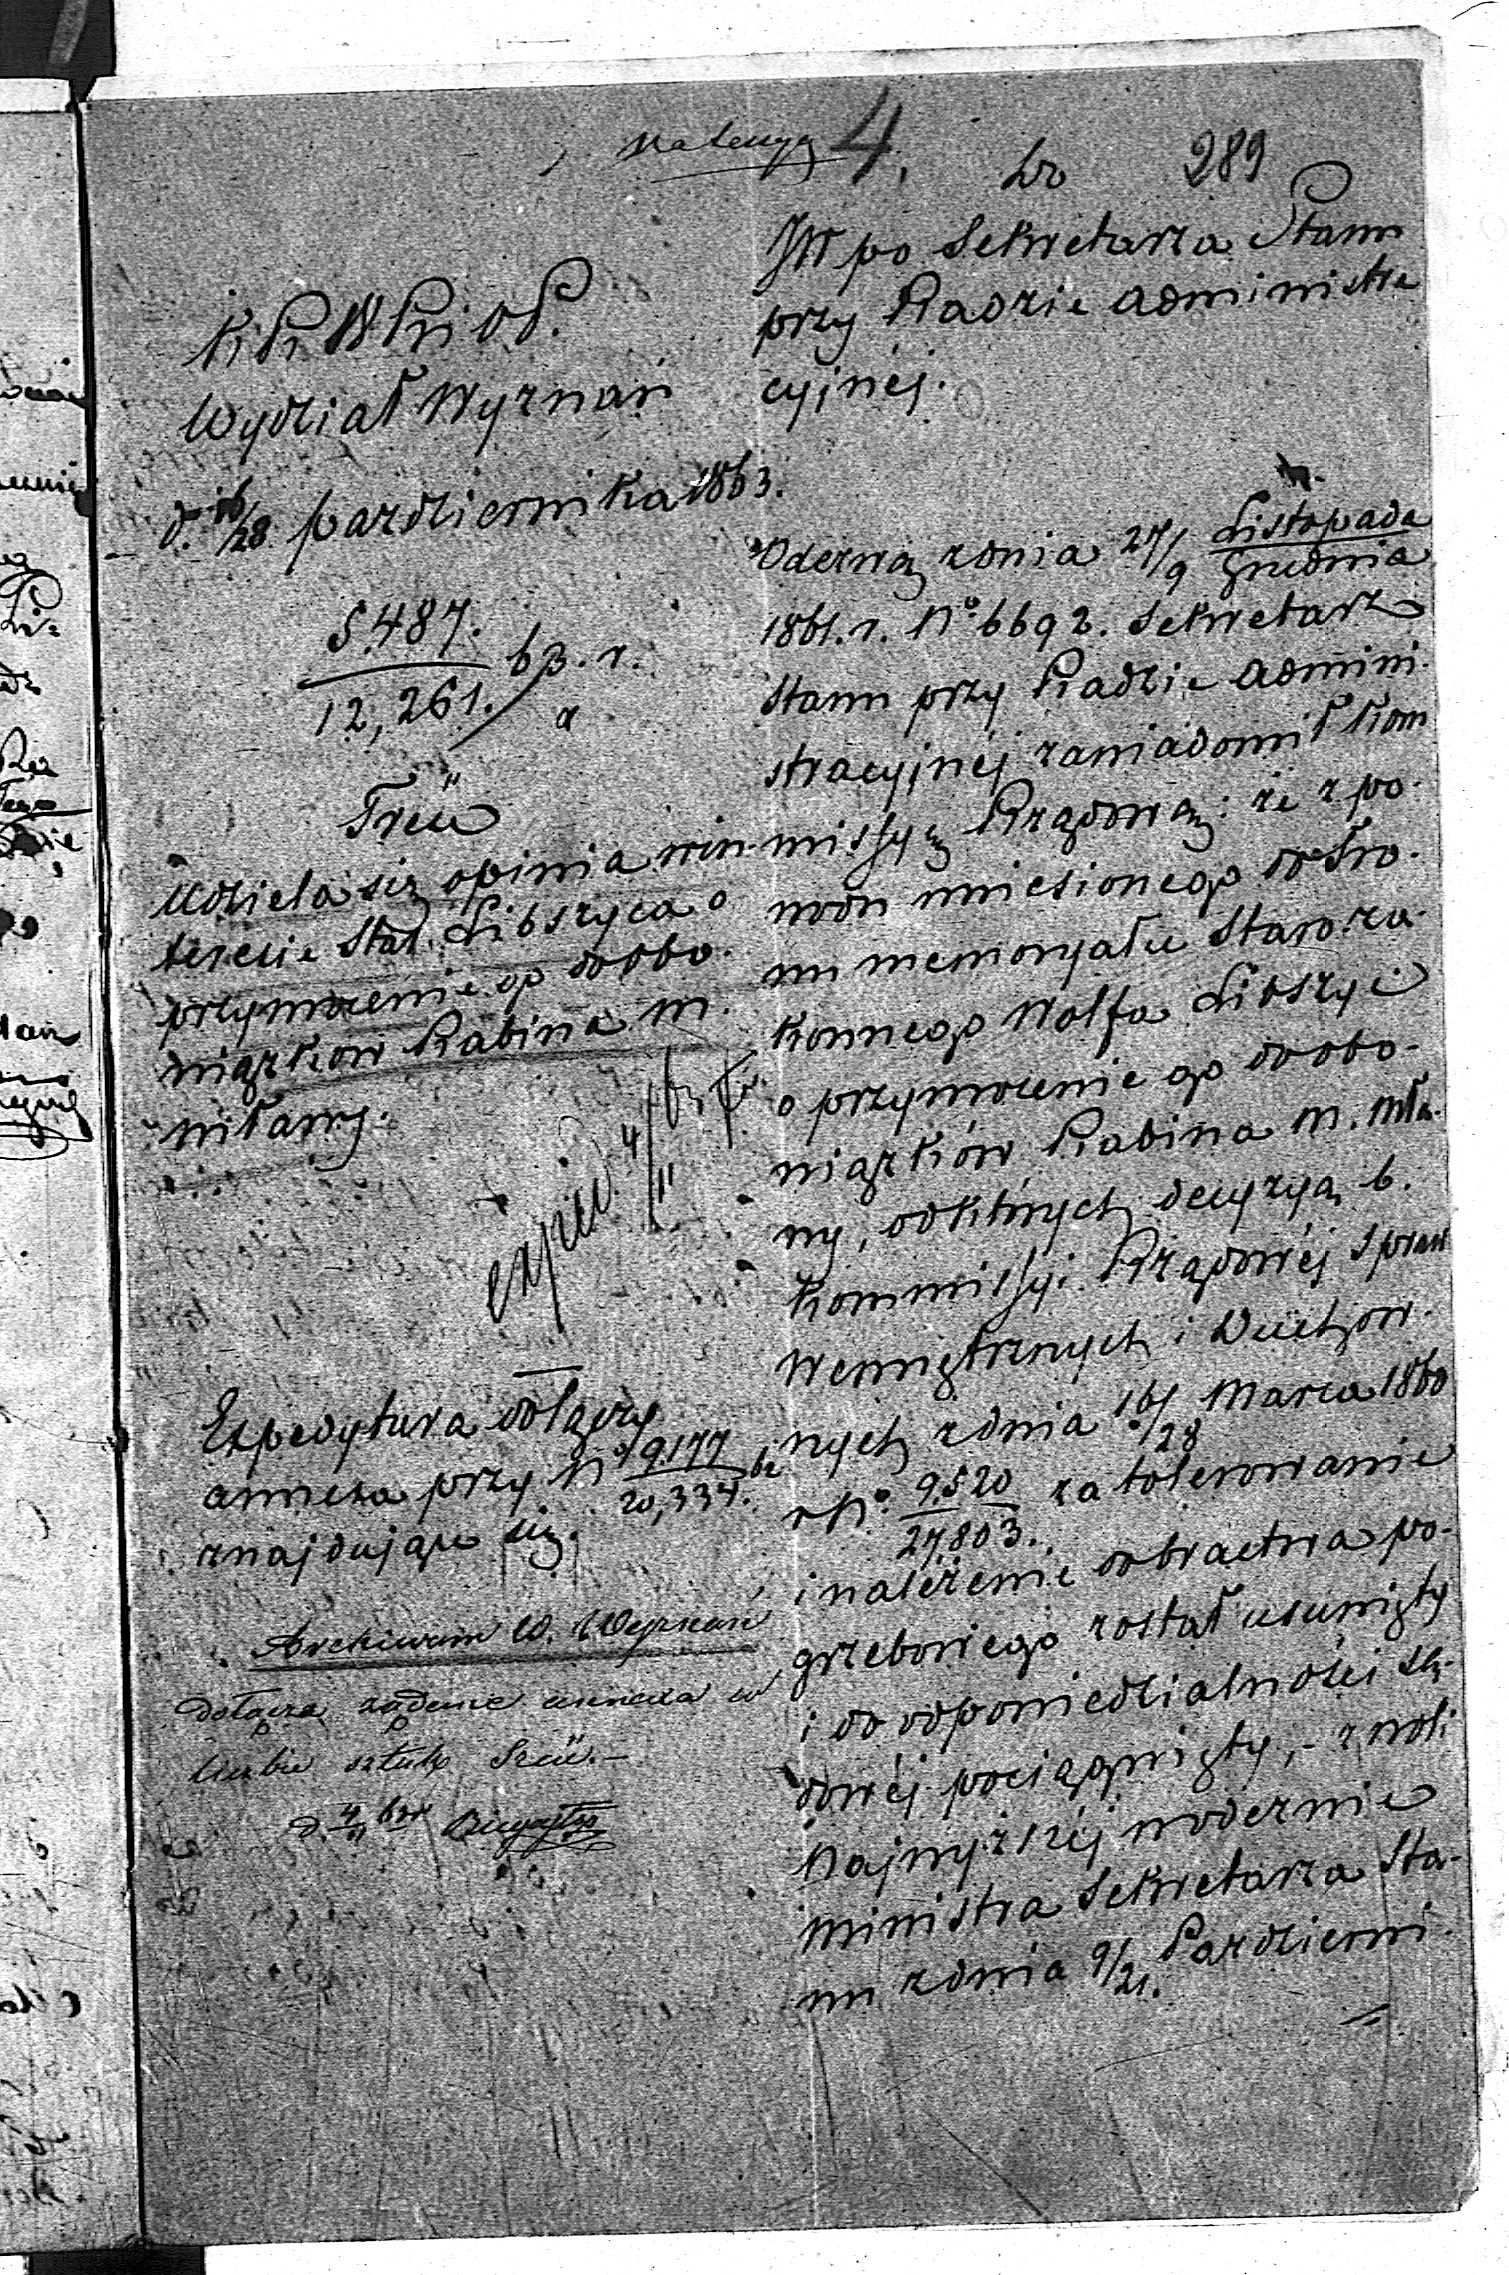 4.
Do
289
JW po Sekretarza Stanu
przy Radzie Administra
cyjnéj.
Wydział Wyznań
d. 16/28 października 1863.
5.487.
12,261. 63. r.
Treść
Udziela się opinia w in-
teresie Star. Libszyca o
przywrócenie go do obo-
wiązków Rabina M.
Mławy.
exped. 4/11 63
Expedytura dołączy
annexa przy No 9.177
20,334.
znajdujące się.
Archiwum W. Wyznań
dołącza żądane annexa w
liczbie sztuk
d. 4/11 63 r.
Odezwą z dnia 27/9 Listopada
Grudnia
1861. r. No 6692. Sekretarz
Stanu przy Radzie Admini-
stracyjnéj zawiadomił Kom
missyę Rządową: że z po-
wodu wniesionego do Tro-
nu memoryału Staroza-
konnego Wolfa Libszyc
o przywrócenie go do obo-
wiązków Rabina M. Mła-
wy, od których decyzyą b.
Kommissyi Rządowéj Spraw
Wewnętrznych i Duchow-
nych z dnia 16/28 Marca 1860
r No. 9520
27,803. za tolerowanie
i należenie do bractwa po-
grzebowego został usunięty
i do odpowiedzialności są-
dowéj pociągnięty, - z woli
Najwyższéj w odezwie
Ministra Sekretarza Sta-
nu z dnia 9/21. Październi-